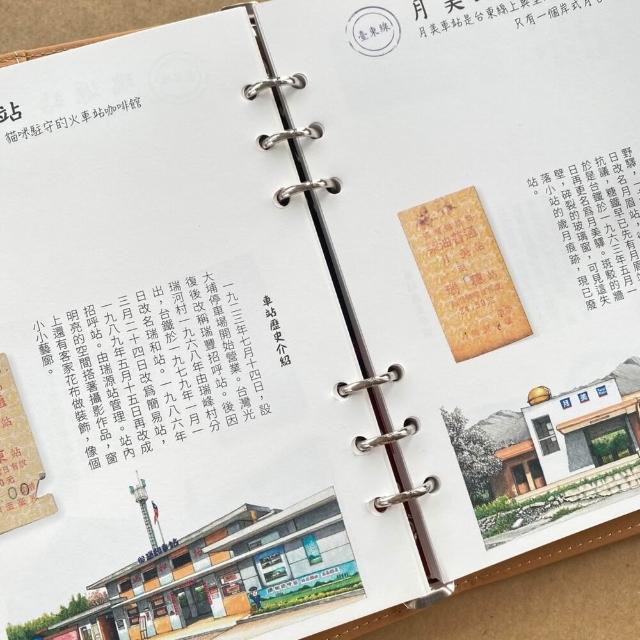 站
貓咪駐守的火車站咖啡館
車站歷史介紹
一九二三年七月十四日，設
大埔停車場開始營業。台灣光
復後改稱瑞豐招呼站。後因
瑞河村一九六八年由瑞源村分
出，台鐵於一九七九年一月一
日改名瑞和站。一九八六年
三月二十四日改為簡易站，
一九八九年五月十五日再改成
招呼站。由瑞源站管理。站內
明亮的空間搭著攝影作品，窗
上還有客家花布做裝飾，像個
小小藝廊。
臺東線
月美
月美車站是台東線上
只有一個岸式月
野驛，
日改名月眉
抗議，糖鐵早已先有月眉
於是台鐵於一九六三年五月
日再更名為月美驛。斑駁的牆
壁，碎裂的玻璃窗，可見這失
落小站的歲月痕跡，現已廢
站。